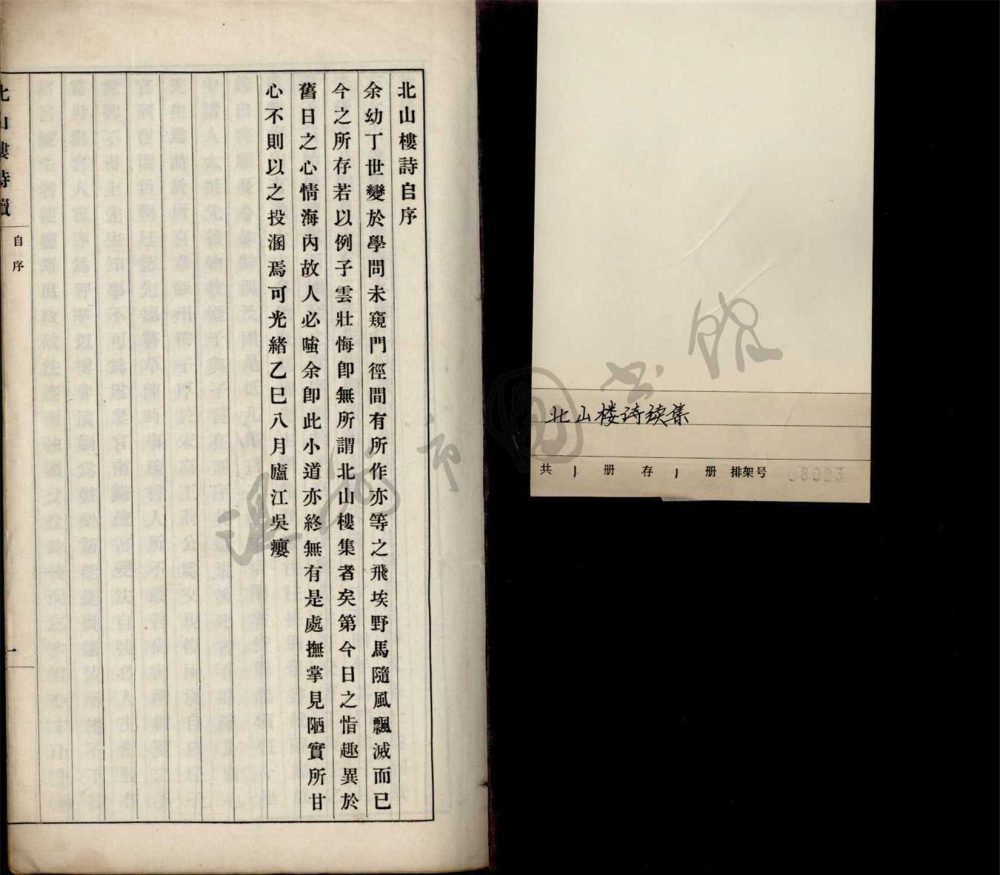 北山樓詩自序
余幼丁世變於學問未窺門徑間有所作亦等之飛埃野馬隨風飄滅而已
今之所存若以例子雲壯悔卽無所謂北山樓集者矣第今日之恉趣異於
舊日之心情海內故人必嗤余卽此小道亦終無有是處撫掌見陋實所甘
心不則以之投溷焉可光緒乙巳八月廬江吳癭
北山樓詩續
自序
一
北山楼诗续集
共1册存1册 排架号